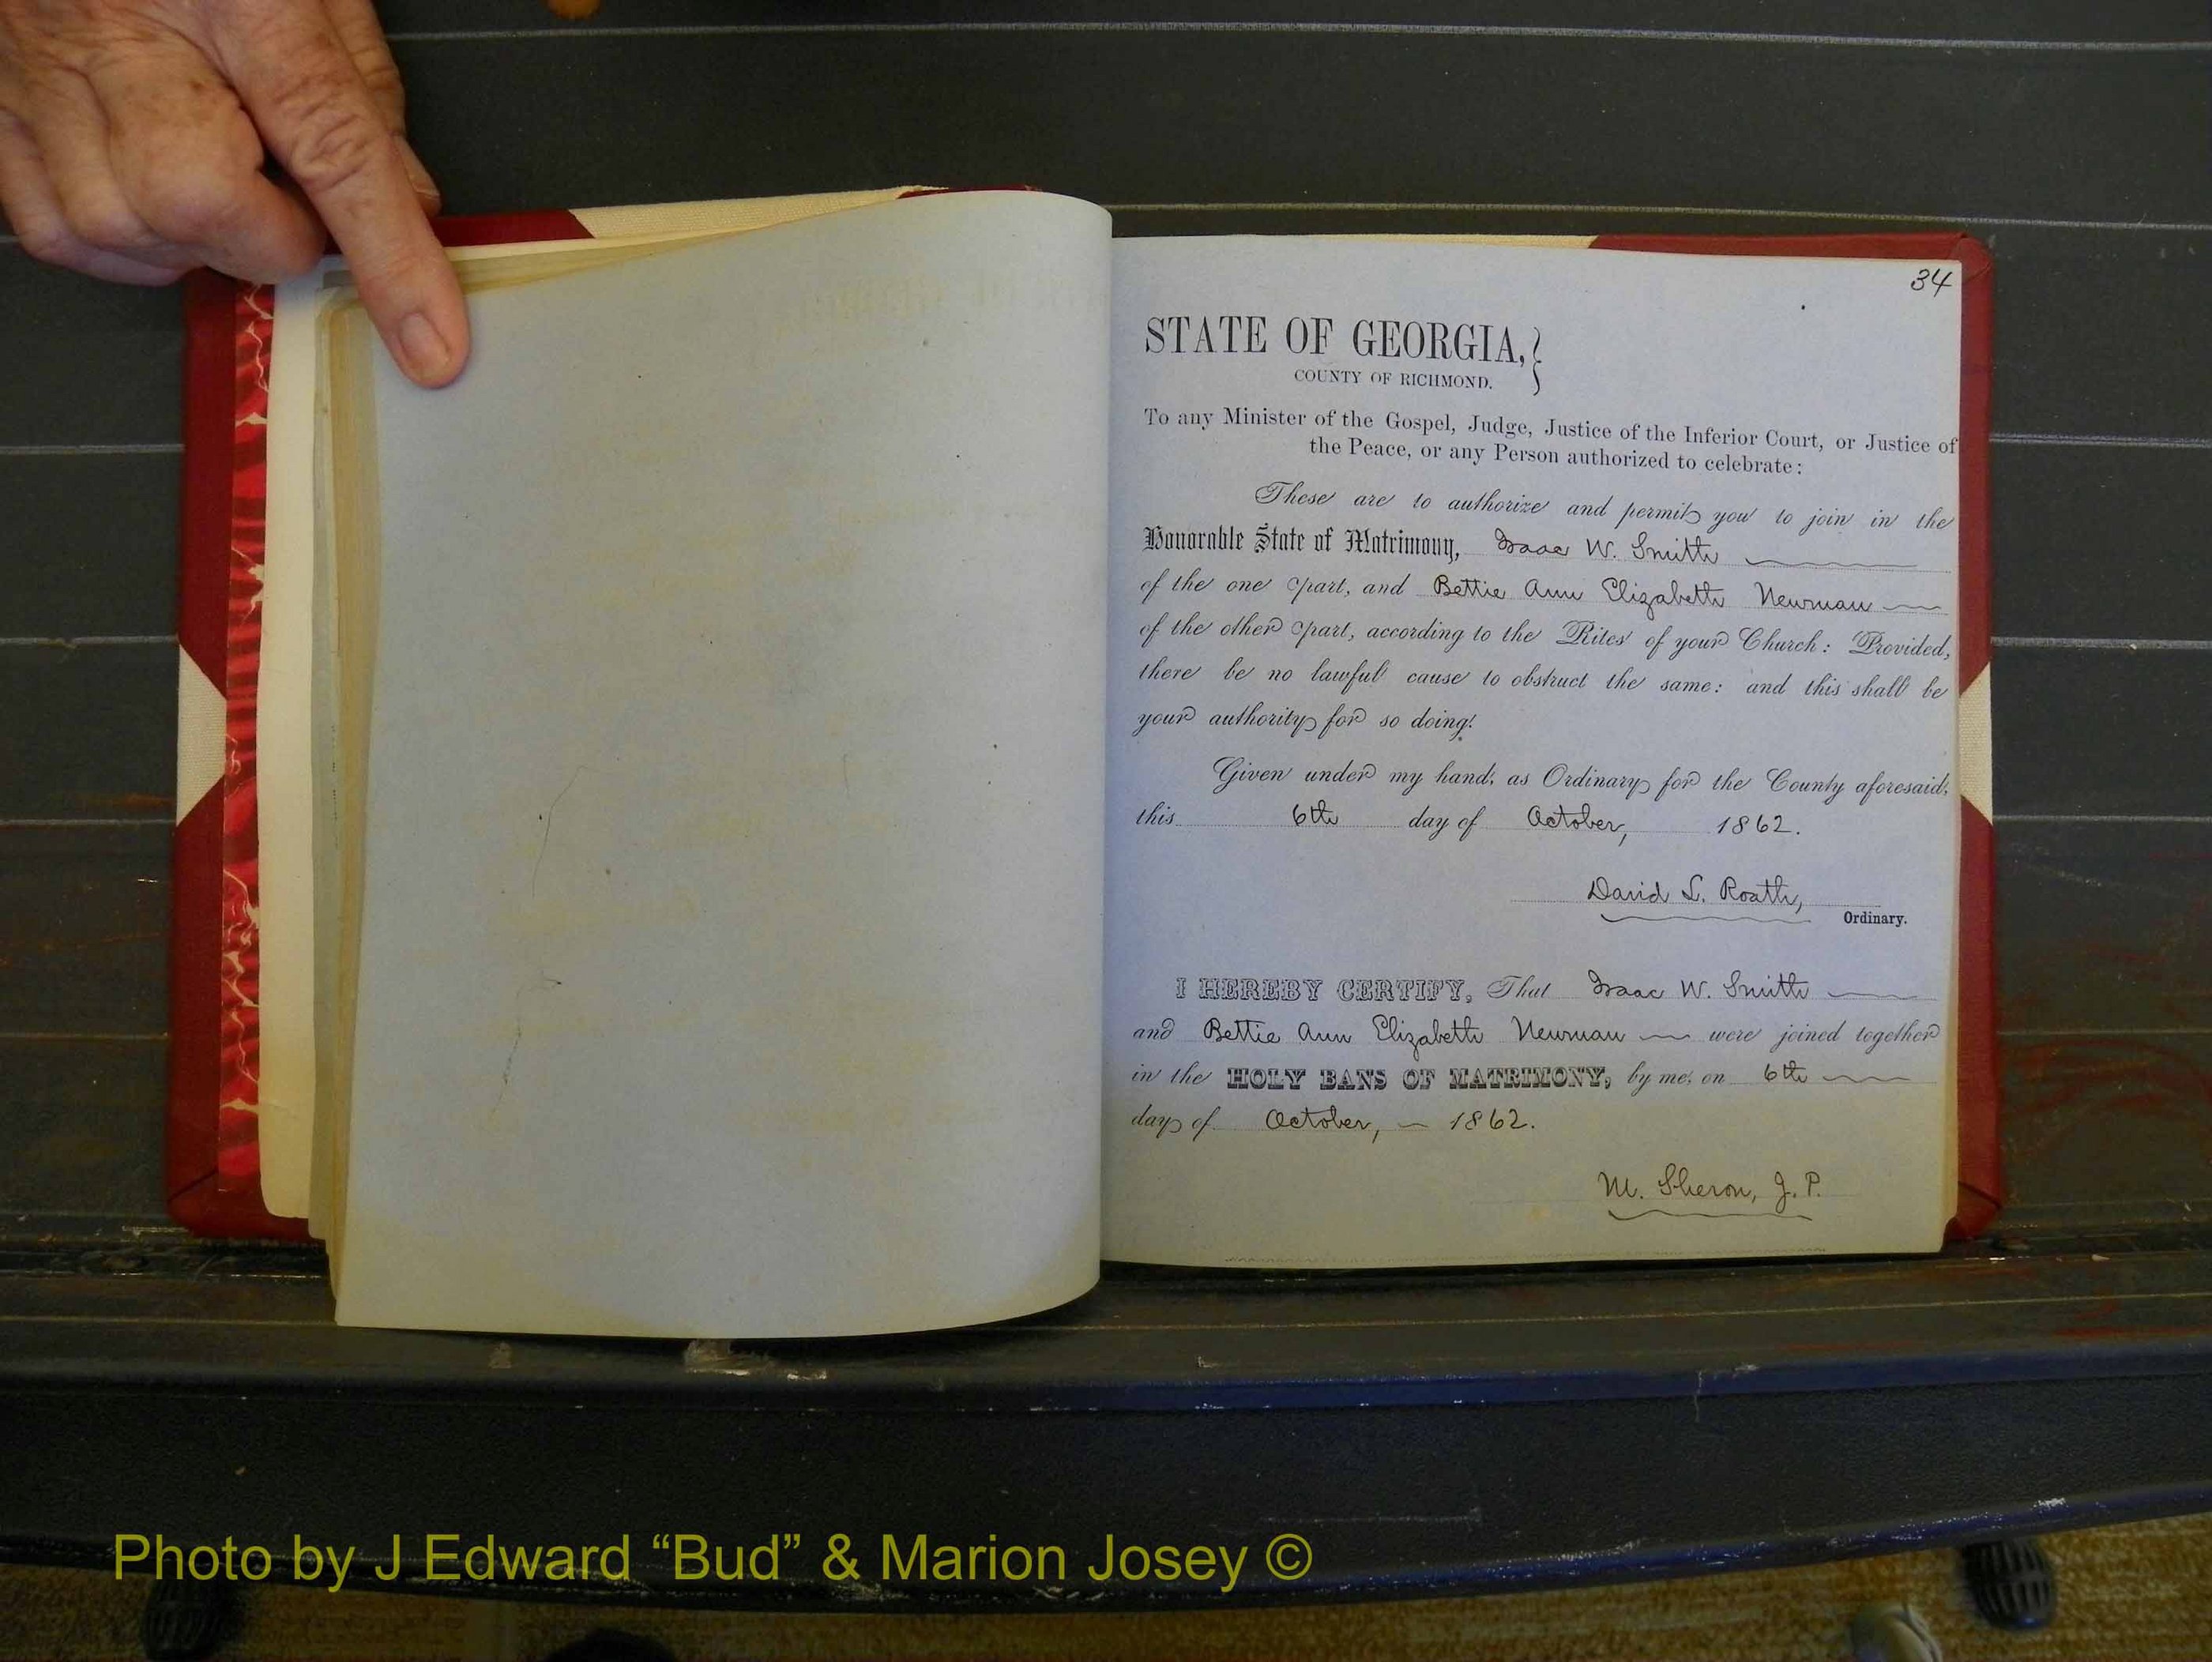 34
STATE OF GEORGIA,
COUNTY OF RICHMOND.
To any Minister of the Gospel, Judge, Justice of the Inferior Court, or Justice of
the Peace, or any Person authorized to celebrate:
These are to authorize and permit you to join in the
Honorable State of Matrimony, Isaac W. Smith
of the one part, and Bettie Ann Elizabeth Newman
of the other part, according to the Rites of your Church: Provided,
there be no lawful cause to obstruct the same: and this shall be
your authority for so doing.
Given under my hand, as Ordinary for the County aforesaid,
this 6th day of October, 1862.
David L. Roath,
Ordinary.
I HEREBY CERTIFY, That Isaac W. Smith
and Bettie Ann Elizabeth Newman were joined together
in the HOLY BANS OF MATRIMONY, by me, on 6th
day of October, 1862.
M. Sheron, J. P.
Photo by J Edward “Bud” & Marion Josey ©